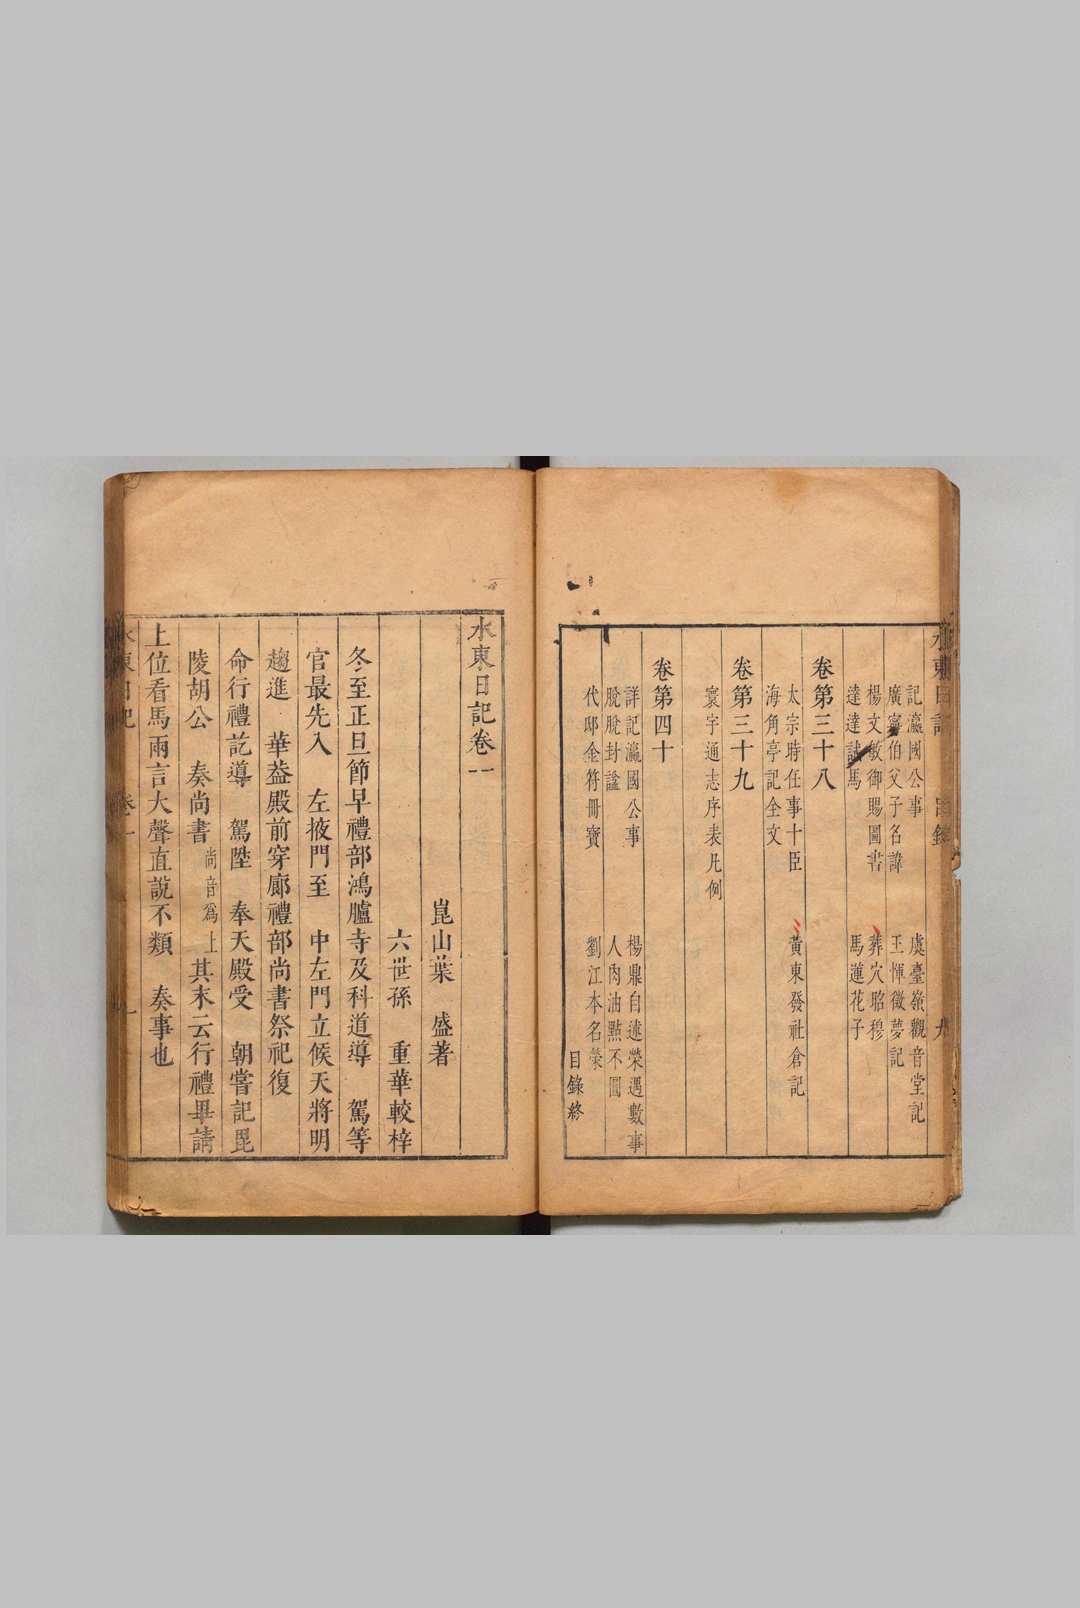 記瀛國公事　虞臺嶺觀音堂記
廣寧伯父子名諱　王惲徵夢記
楊文敏御賜圖書　葬穴昭穆
達達試馬　馬蓮花子
卷第三十八
太宗時任事十臣　黃東發社倉記
海角亭記全文
卷第三十九
寰宇通志序表凡例
卷第四十
詳記瀛國公事　楊鼎自述榮遇數事
脫脫封諡　人肉油點不圓
代邸金符冊寶　劉江本名榮
目錄終
水東日記卷一
崑山葉　盛著
六世孫　重華較梓
冬至正旦節早禮部鴻臚寺及科道導　駕等
官最先入　左掖門至　中左門立候天將明
趨進　華葢殿前穿廊禮部尚書祭祀復
命行禮訖導　駕陞　奉天殿受　朝嘗記毘
陵胡公　奏尚書尚音爲上其末云行禮畢請
上位看馬兩言大聲直說不類　奏事也
水東日記　卷一　一